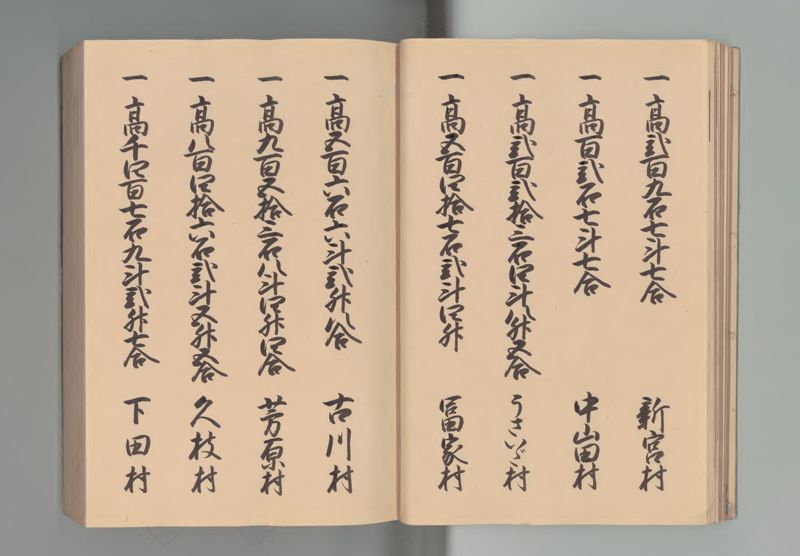 一 高弐百九石七斗七合 新宮村
一 高百弐石七斗七合 中山田村
一 高弐百弐拾三石四斗八升五合 うさいご村
一 高五百四拾七石弐斗四升 冨家村
一 高五百六石六斗弐升八合 古川村
一 高九百五拾三石八斗四升四合 芳原村
一 高八百四拾六石弐斗五升五合 久枝村
一 高千四百七石九斗弐升七合 下田村